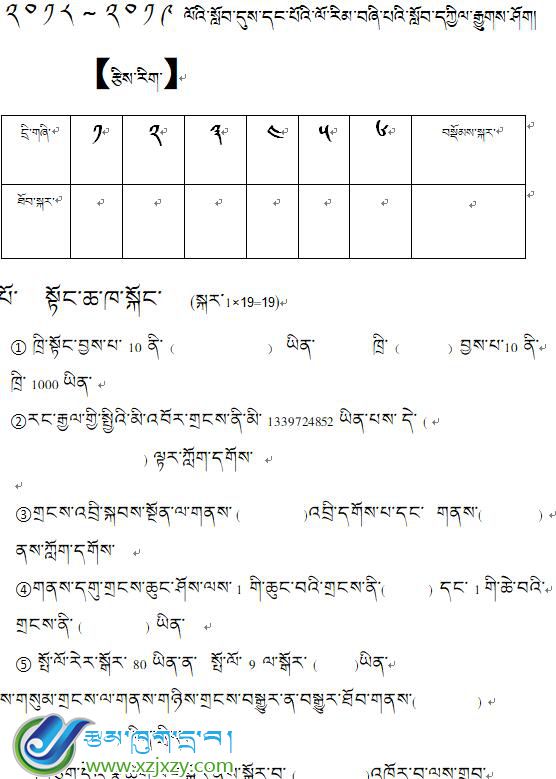 ༢༠༡༨ ~ ༢༠༡༩ ལོའི་སློབ་དུས་དང་པོའི་ལོ་རིམ་བཞི་པའི་སློབ་དཀྱིལ་རྒྱུགས་ཤོག།
【རྩིས་རིག་】
དྲི་གཞི་ ༡ ༢ ༣ ༤ ༥ ༦ བསྡོམས་སྐར་
ཐོབ་སྐར་
པོ་ སྟོང་ཆ་ཁ་སྐོང་ (སྐར་1×19=19)
① ཁྲི་སྟོང་བྱས་པ་ 10 ནི་ ( ) ཡིན་ ཁྲི་ ( ) བྱས་པ་10 ནི་
ཁྲི་ 1000 ཡིན་
②རང་རྒྱལ་གྱི་སྤྱིའི་མི་འབོར་གྲངས་ནི་མི་ 1339724852 ཡིན་པས་ དེ་ (
) ལྟར་ཀློག་དགོས་
③གྲངས་འབྲི་སྐབས་སྔོན་ལ་གནས་ ( )འབྲི་དགོས་པ་དང་ གནས་( )
ནས་ཀློག་དགོས་
④གནས་དགུ་གྲངས་ཆུང་ཤོས་ལས་ 1 གི་ཆུང་བའི་གྲངས་ནི་( ) དང་ 1 གི་ཆེ་བའི་
གྲངས་ནི་ ( ) ཡིན་
⑤ སྤོ་ལོ་རེར་སྒོར་ 80 ཡིན་ན་ སྤོ་ལོ་ 9 ལ་སྒོར་ ( )ཡིན་
ས་གསུམ་གྲངས་ལ་གནས་གཉིས་གྲངས་བསྒྱུར་ན་བསྒྱུར་ཐོབ་གནས་( )
ཆུམ་ཁུག་དྲ་བ།
www.xzjxzy.com
( )འཁོར་བ་ལས་གྲུབ་